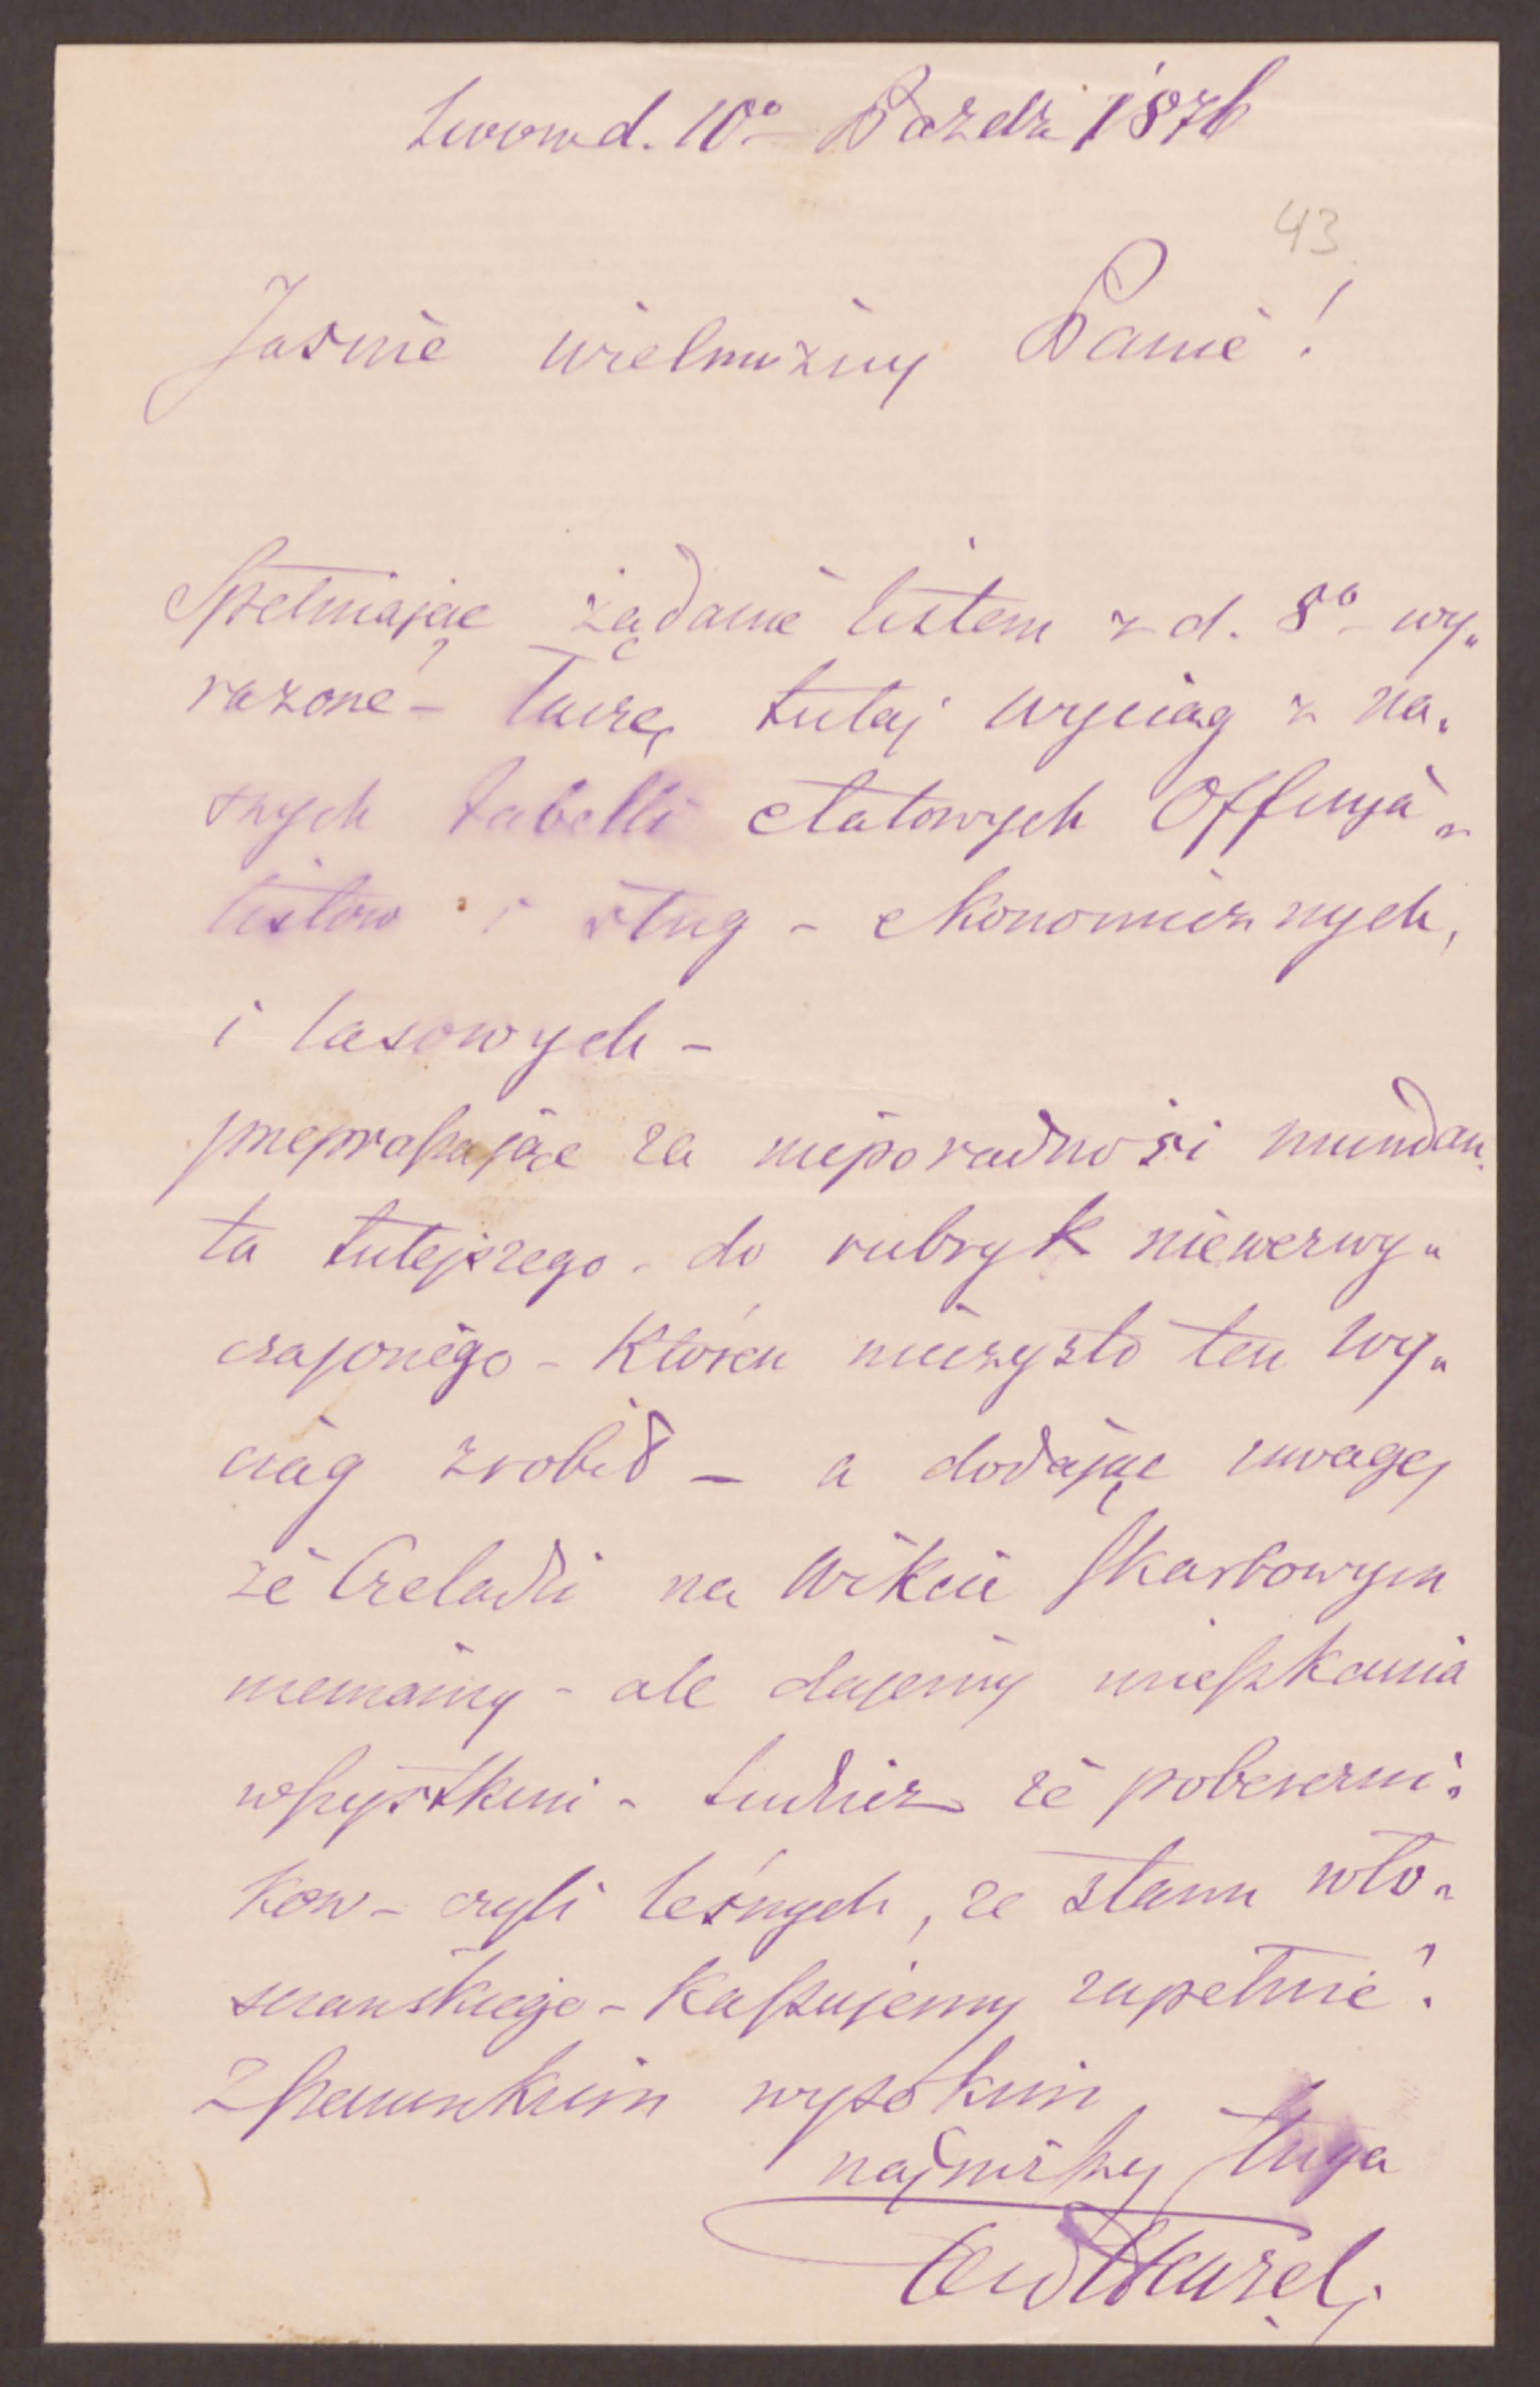 Lwow d. 10° Pazdz 1876
43
Jasnie wielmożny Panie!
Spełniając żądanie listem z d. 8° wy„
rażone – łączę tutaj wyciąg z na„
szych tabelli etatowych Offycya„
listow i sług – ekonomicznych,
i lasowych –
przepraszając za nieporadność mundan„
ta tutejszego – do rubryk niewezwy„
czajonego – który nieczysto ten wy„
ciąg zrobił – a dodając uwagę,
że Czeladzi na wikcie skarbowym
niemamy – ale dajemy mieszkania
wszystkim – tudzież że pobereżni„
kow – czyli leśnych, ze stanu wło„
sciańskiego – kassujemy zupełnie!
Z szacunkiem wysokim
najniższy sługa